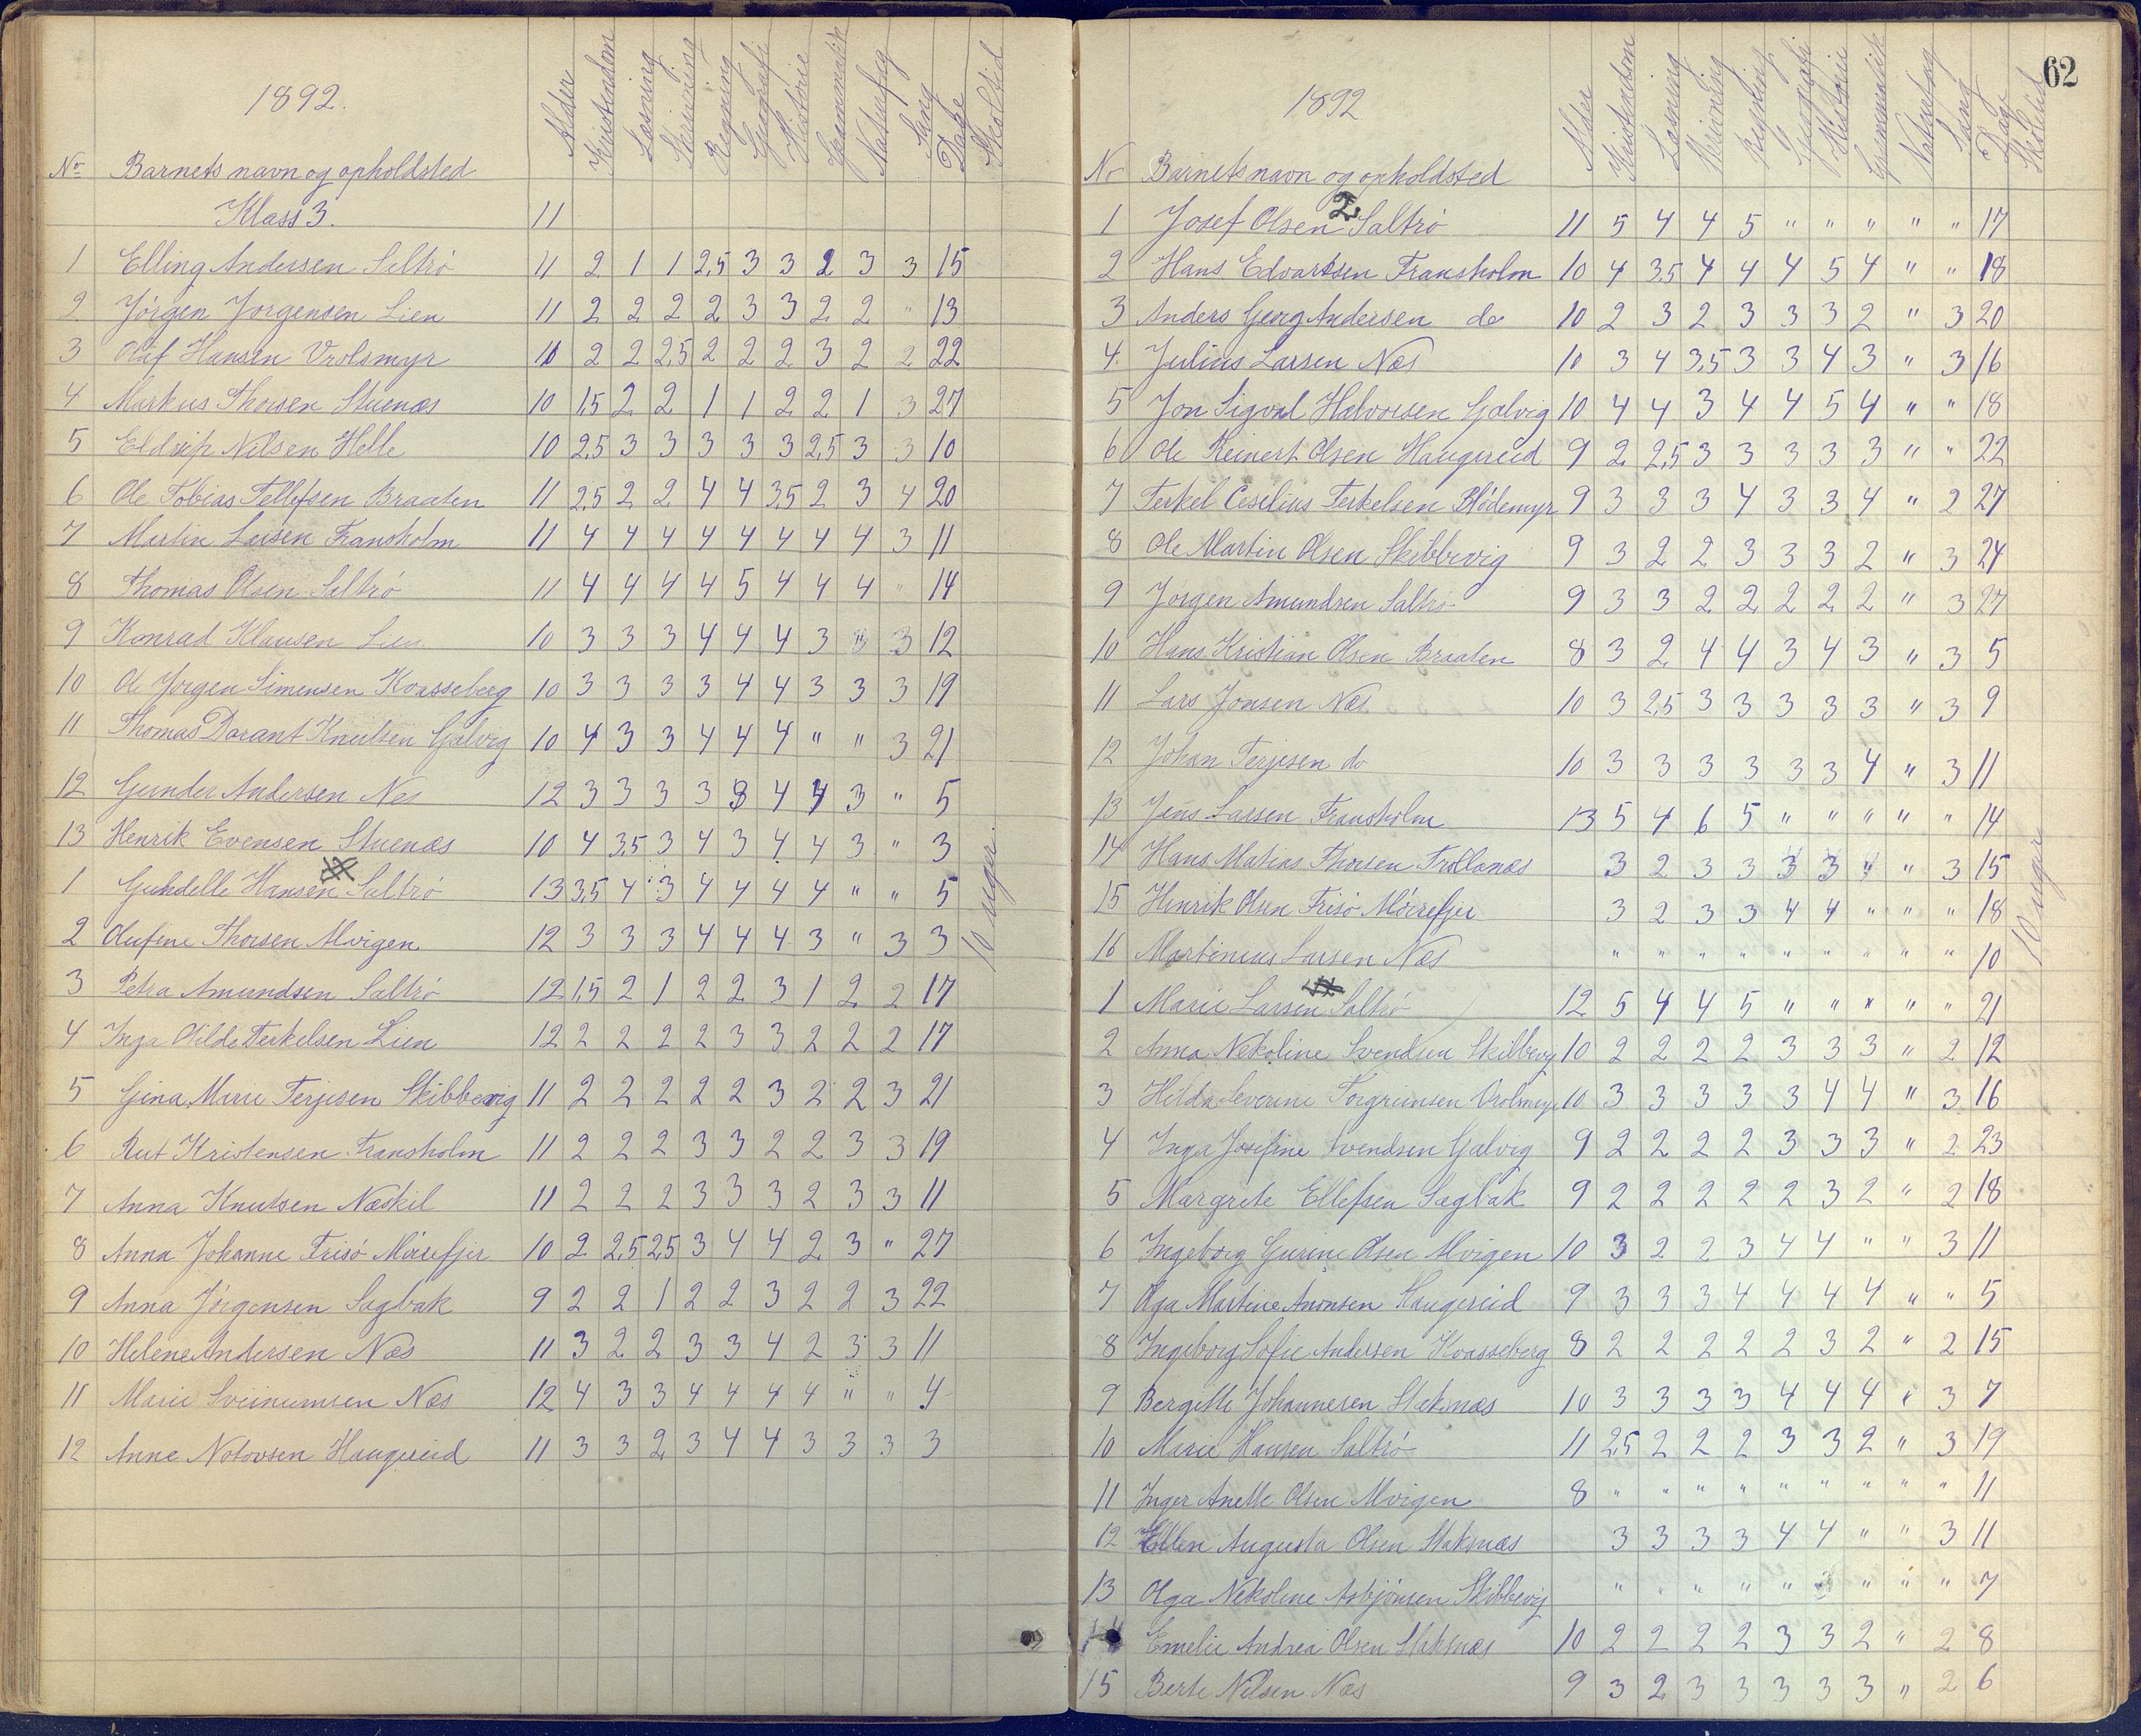 1892.
Alder Kristendom Læsning Skrivning Regning Geografi Historie Grammatik Naturfag Sang Dage Skoletid
No Barnets navn og opholdsted
Klass 3. 11
1 Elling Andersen Saltrö 11 2 1 1 2,5 3 3 2 3 3 15
2 Jörgen Jorgensen Lien 11 2 2 2 2 3 3 2 2 " 13
3 Olaf Hansen Vrolsmyr 10 2 2 2,5 2 2 2 3 2 2 22
4 Markus Thorsen Stuenæs 10 1,5 2 2 1 1 2 2 1 3 27
5 Nilsen Helle 10 2,5 3 3 3 3 3 2,5 3 3 10
6 Ole Tobias Tellefsen Braaten 11 2,5 2 2 4 4 3,5 2 3 4 20
7 Martin Larsen Fransholm 11 4 4 4 4 4 4 4 4 3 11
8 Thomas Olsen Saltrö 11 4 4 4 4 5 4 4 4 " 14
9 Konrad Klausen Lien 10 3 3 3 4 4 4 3 3 12
10 Ole Jorgen Simensen Kvasseberg 10 3 3 3 3 4 4 3 3 3 19
11 Thomas Dorant Knutsen Galvig 10 4 3 3 4 4 4 " " 3 21
12 Gunder Andersen Nes 12 3 3 3 3 3 4 4 3 " 5
13 Henrik Evensen Stuenæs 10 4 3,5 3 4 3 4 4 3 " 3
1 Hansen Saltrö 13 3,5 4 3 4 4 4 4 " " 5
2 Olufine Thorsen Alvigen 12 3 3 3 4 4 4 3 " 3 3
3 Petra Amundsen Saltrö 12 1,5 2 1 2 2 3 1 2 2 17
4 Inga Olilde Terkelsen Lien 12 2 2 2 2 3 3 2 2 2 17
5 Gina Marie Terjesen Skibbevig 11 2 2 2 2 2 3 2 2 3 21
6 Rut Kristensen Fransholm 11 2 2 2 3 3 2 2 3 3 19
7 Anna Knutsen Næskil 11 2 2 2 3 3 3 2 3 3 11
8 Anna Johanne Frisö Möirefjer 10 2 2,5 2,5 3 4 4 2 3 " 27
9 Anna Jörgensen Sagbak 9 2 2 1 2 2 3 2 2 3 22
10 Helene Andersen Næs 11 3 2 2 3 3 4 2 3 3 11
11 Marie Sveinumsen Næs 12 4 3 3 4 4 4 4 " " 4
12 Anne Notovsen Haugereid 11 3 3 2 3 4 4 3 3 3 3
10 uger.
62
1892
Alder Kristendom Læsning Skrivning Regning Geografi Historie Grammatik Naturfag Sang Dage Skoletid
No Barnets navn og opholdsted
2.
1 Josef Olsen Saltrö 11 5 4 4 5 " " " " " 17
2 Hans Edvartsen Fransholm 10 4 3,5 4 4 4 5 4 " " 18
3 Anders Georg Andersen do 10 2 3 2 3 3 3 2 " 3 20
4. Julius Larsen Næs 10 3 4 3,5 3 3 4 3 " 3 16
5 Jon Sigval Halvorsen Galvig 10 4 4 3 4 4 5 4 " " 18
6 Ole Reinert Olsen Haugereid 9 2 2,5 3 3 3 3 3 " " 22
7 Terkel Ceselius Terkelsen Blödemyr 9 3 3 3 4 3 3 4 " 2 27
8 Ole Martin Olsen Skibbevig 9 3 2 2 3 3 3 2 " 3 24
9 Jorgen Amundsen Saltrö 9 3 3 2 2 2 2 2 " 3 27
10 Hans Kristian Olsen Braaten 8 3 2 4 4 3 4 3 " 3 5
11 Lars Jonsen Næs 10 3 2,5 3 3 3 3 3 " 3 9
12 Johan Terjesen do 10 3 3 3 3 3 3 4 " 3 11
13 Jens Larsen Fransholm 13 5 4 6 5 " " " " " 14
14 Hans Matias Thorsen Trollanæs 3 2 3 3 3 3 " " 3 15
15 Henrik Olsen Frisö Möirefjer 3 2 3 3 4 4 " " " 18
16 Martinius Larsen Næs " " " " " " " " " 10
1 Marie Larsen Saltrö 12 5 4 4 5 " " " " " 21
2 Anna Nekoline Svendsen Skibbevig 10 2 2 2 2 3 3 3 " 2 12
3 Hilda Severine Torgrimsen Vrolsmyr 10 3 3 3 3 3 4 4 " 3 16
4 Inga Josefine Svendsen Galvig 9 2 2 2 2 3 3 3 " 2 23
5 Margrete Ellefsen Sagbak 9 2 2 2 2 2 3 2 " 2 18
6 Ingeborg Gurine Olsen Alvigen 10 3 2 2 3 4 4 " " 3 11
7 Olga Martine Aronsen Haugereid 9 3 3 3 4 4 4 4 " " 5
8 Ingeborg Sofie Andersen Kvasseberg 8 2 2 2 2 2 3 2 " 2 15
9 Bergitte Johannesen Staksnæs 10 3 3 3 3 4 4 4 " 3 7
10 Marie Hansen Saltrö 11 2,5 2 2 2 3 3 2 " 3 19
11 Inger Anette Olsen Alvigen 8 " " " " " " " " " 11
12 Ellen Augusta Olsen Staksnæs 3 3 3 3 4 4 " " 3 11
13 Olga Nekoline Asbjönsen Skibbevig " " " " " " " " 7
14 Emelie Andrea Olsen Staksnæs 10 2 2 2 2 3 3 2 " 2 8
15 Berte Nilsen Næs 9 3 2 3 3 3 3 3 " 2 6
10 uger